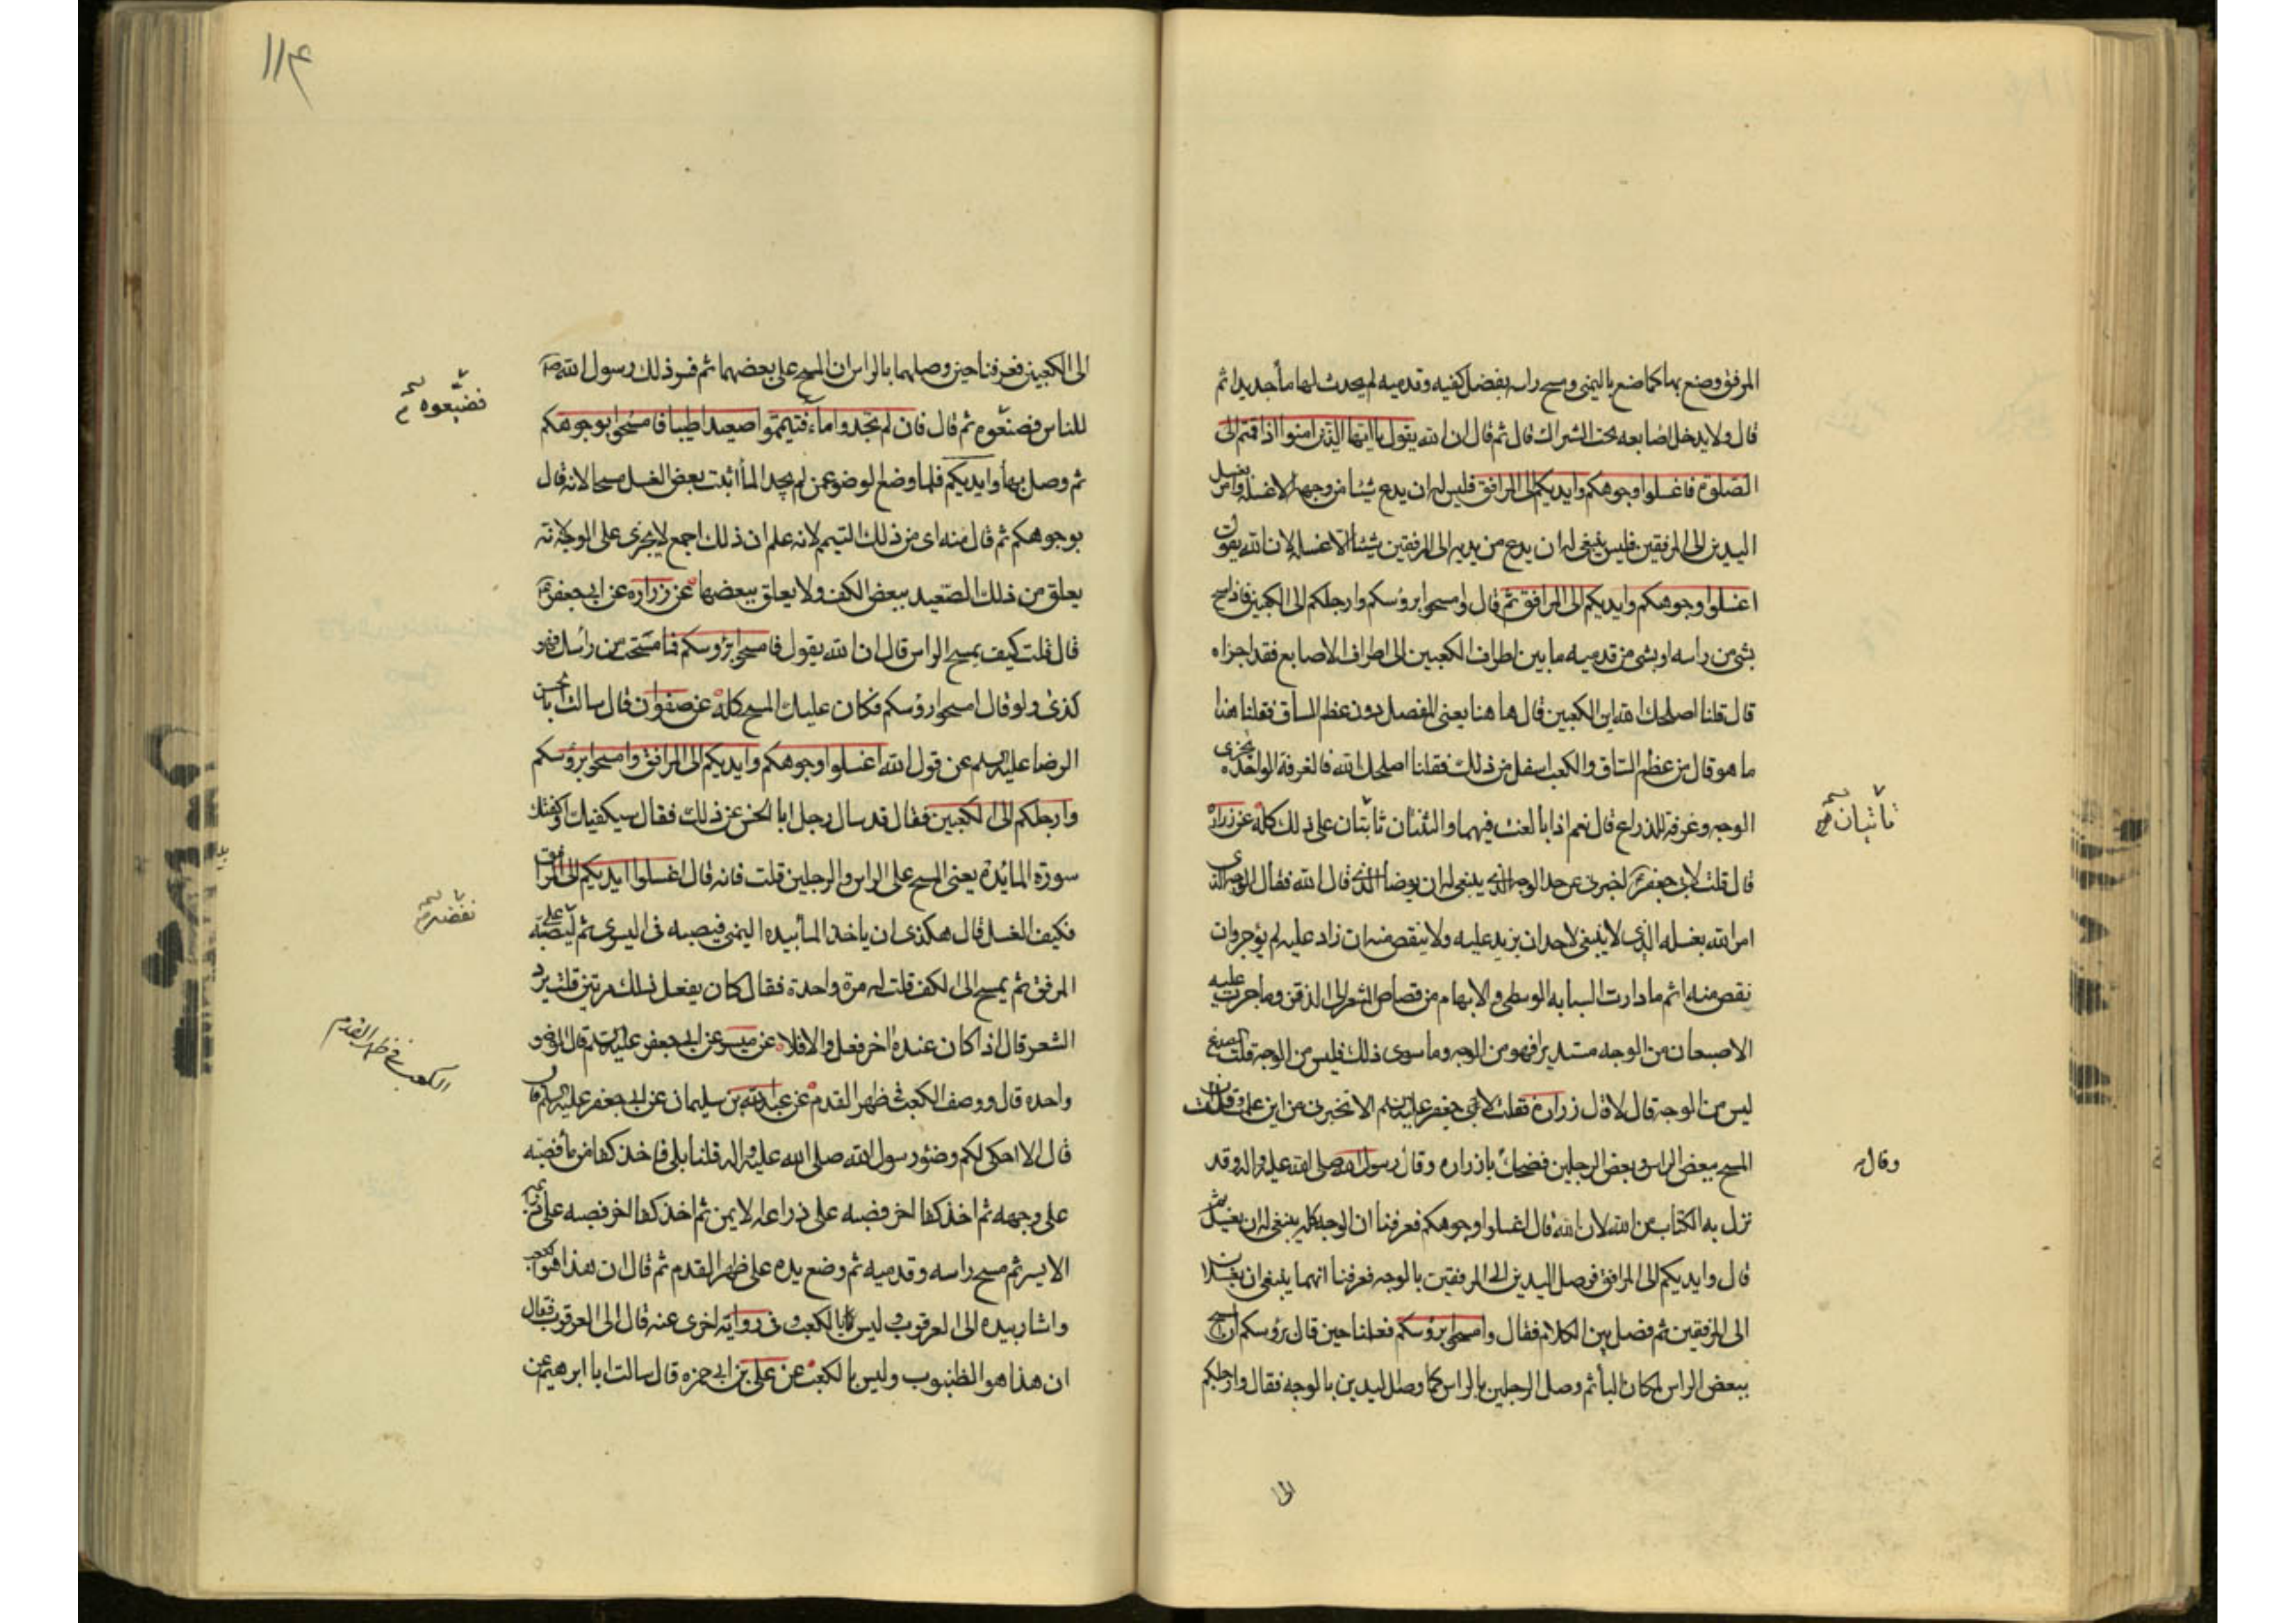 المرفق وصنع بها كما صنع باليمنى ومسح راسه بفضل كفيه وقدميه لم يحدث لها مأ جديدا ثم
قال ولا يدخل اصابعه تحت الشراك قال ثم قال ان الله يقول يا ايها الذين امنوا اذا قمتم الى
الصلوة فاغسلوا وجوهكم وايديكم الى المرافق فليس له ان يدع شيئا من وجهه الا غسله وامر بغسل
اليدين الى المرفقين فليس ينبغى له ان يدع من يديه الى المرفقين شيئا الا غسله لان الله يقول
اغسلوا وجوهكم وايديكم الى المرافق ثم قال وامسحوا برؤسكم وارجلكم الى الكعبين فاذا مسح
بشئ من راسه او بشئ من قدميه ما بين اطراف الكعبين الى اطراف الاصابع فقد اجزاه
قال قلنا اصلحك الله اين الكعبين قال ها هنا يعنى المفصل دون عظم الساق فقلنا هذا
ما هو قال من عظم الساق والكعب اسفل من ذلك فقلنا اصلحك الله فالغرفة الواحده تجزى
الوجه وغرفة للذراع قال نعم اذا بالغت فيهما والثنتان تأتيان على ذلك كله عن زرارة
قال قلت لابى جعفر اخبرنى عن حد الوجه الذى ينبغى له ان يوضأ الذى قال الله فقال الوجه الذى
امر الله بغسله الذى لا ينبغى لاحد ان يزيد عليه ولا ينقص منه ان زاد عليه لم يؤجر وان
نقص منه اثم ما دارت السبابه الوسطى والابهام من قصاص الشعر الى الذقن وما جرت عليه
الاصبعان من الوجه مستديرا فهو من الوجه وما سوى ذلك فليس من الوجه قلت الصدغ
ليس من الوجه قال لا قال زرارة فقلت لابى جعفر عليه السلم الا تخبرنى من اين علمت وقلت ان
المسح ببعض الراس وبعض الرجلين فضحك يا زراره وقال رسول الله صلى الله عليه واله وقد
نزل به الكتاب من الله لان الله قال اغسلوا وجوهكم فعرفنا ان الوجه كله ينبغى له ان يغسل ثم
قال وايديكم الى المرافق فوصل اليدين الى المرفقين بالوجه فعرفنا انهما ينبغى ان يغسلا
الى المرفقين ثم فصل بين الكلام فقال وامسحوا برؤسكم فعلمنا حين قال برؤسكم ان المسح
ببعض الراس لمكان البأ ثم وصل الرجلين بالراس كما وصل اليدين بالوجه فقال وارجلكم
تأتيان
وقال
الى
الى الكعبين فعرفنا حين وصلهما بالراس ان المسح على بعضهما ثم فسر ذلك رسول الله ص
للناس فصنعوه ثم قال فان لم تجدوا ماء فتيمموا صعيدا طيبا فامسحوا بوجوهكم
ثم وصل بها وايديكم فلما وضع الوضوء عمن لم يجد المأ اثبت بعض الغسل مسحا لانه قال
بوجوهكم ثم قال منه اى من ذلك التيمم لانه علم ان ذلك اجمع لا يجرى على الوجه لانه
يعلق من ذلك الصعيد ببعض الكف ولا يعلق ببعضها عن زراره عن ابى جعفر
قال قلت كيف يمسح الراس قال ان الله يقول فامسحوا برؤسكم فما مسحت من راسك فهو
كذى ولو قال امسحوا رؤسكم فكان عليك المسح كله عن صفوان قال سالت ابا الحسن
الرضا عليه السلم عن قول الله اغسلوا وجوهكم وايديكم الى المرافق وامسحوا برؤسكم
وارجلكم الى الكعبين فقال قد سال رجل ابا الحسن عن ذلك فقال سيكفيك او كفتك
سورة المائده يعنى المسح على الراس والرجلين قلت فانه قال اغسلوا ايديكم الى المرافق
فكيف الغسل قال هكذى ان ياخذ المأ بيده اليمنى فيصبه فى اليسرى ثم ليصبه على
المرفق ثم يمسح الى الكف قلت له مرة واحدة فقال كان يفعل ذلك مرتين قلت يرد
الشعر قال اذا كان عنده اخر فعل والا فلا عن ميسر عن ابى جعفر عليه السلم قال الوضو
واحده قال ووصف الكعب فى ظهر القدم عن عبد الله بن سليمان عن ابى جعفر عليه السلم قال
قال الا احكى لكم وضوء رسول الله صلى الله عليه واله قلنا بلى فاخذ كفا من مأ فصبه
على وجهه ثم اخذ كفا اخر فصبه على ذراعه الايمن ثم اخذ كفا اخر فصبه على ذراعه
الايسر ثم مسح راسه وقدميه ثم وضع يده على ظهر القدم ثم قال ان هذا هو الكعب
واشار بيده الى العرقوب وليس بالكعب وفى رواية اخرى عنه قال الى العرقوب فقال
ان هذا هو الظنبوب وليس بالكعب عن على بن ابى حمزه قال سالت ابا ابرهيم عن
فضيعوه
نفضه
الكعب فى ظهر القدم